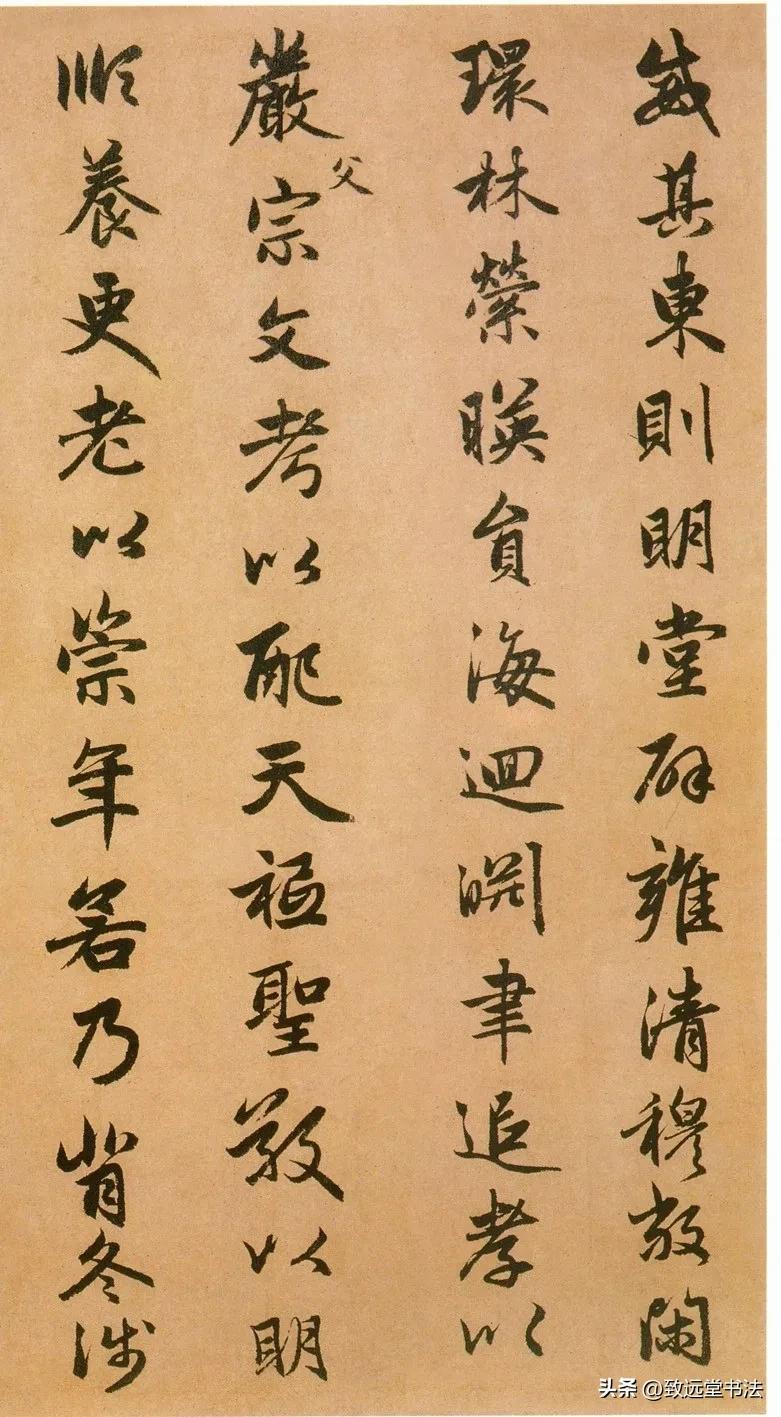 威其東則明堂辟雍清穆敞閑
環林縈暎員海迴淵聿追孝以
嚴父宗文考以配天祗聖敬以明
順養更老以崇年若乃背冬涉
头条 @致远堂书法